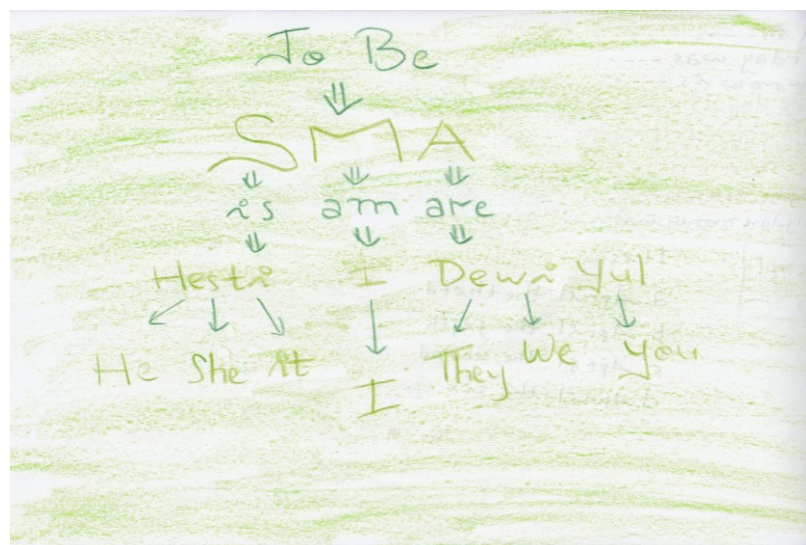 To Be
SMA
is am are
Hesti I Dewi Yul
He She it I They We you